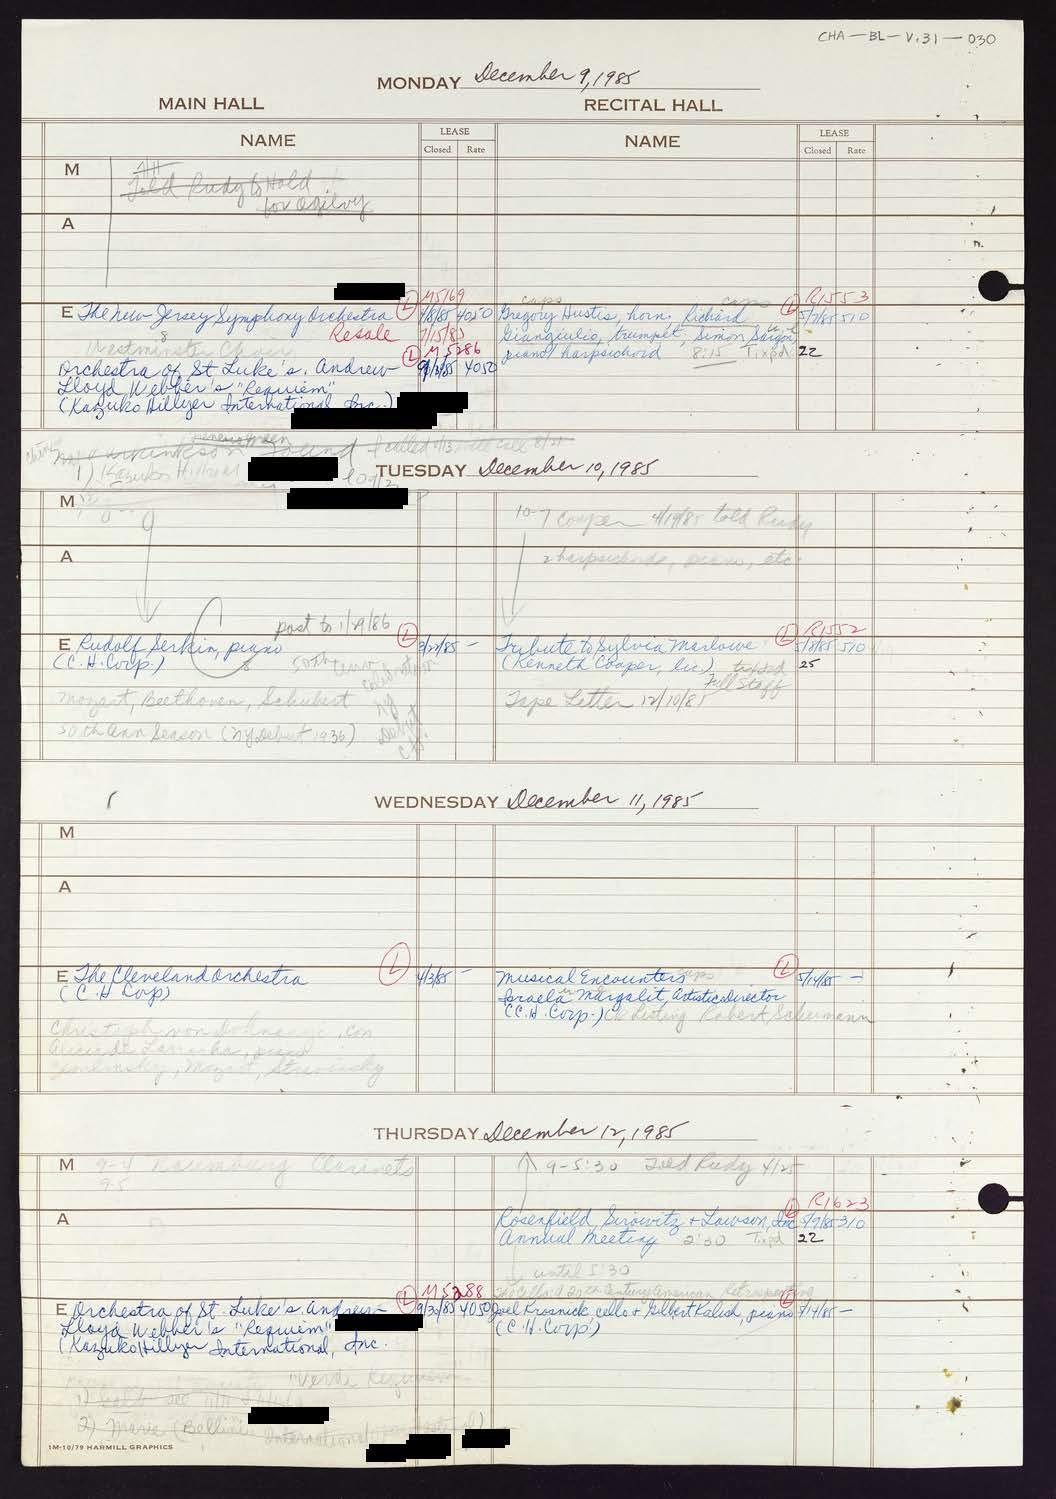 CHA-BL-V.31-030
MONDAY December 9, 1985
MAIN HALL RECITAL HALL
NAME LEASE NAME LEASE
Closed Rate Closed Rate
M
Told Rudy to Hold
for Ogilvy
A
M5169 R1553
E The New Jersey Symphony Orchestra L 4/8/85 4050
Resale 7/15/85
Westminster Choir
L M5286
Orchestra of St Luke's. Andrew 4050
Lloyd Webber's "Requiem"
(Kazuko Hillyer International, Inc.)
caps caps
Gregory Hustis, horn. Richard L 5/7/85 510
Giangiulio, trumpet, Simon Sargon,
piano/harpsichord 8:15 Tixpd. 22
I called
1) Kazuko Hillyer
TUESDAY December 10, 1985
M
10-7 Cooper 4/19/85 told Rudy
A
2 harpsichords, piano, etc.
post to 1/29/86
E Rudolf Serkin, piano L 3/22/85 -
(C.H. Corp.)
50th
Mozart, Beethoven, Schubert
50th Ann Season (NY Debut 1936)
NY
Debut
CH.
R1552
Tribute to Sylvia Marlowe L 5/8/85 510
(Kenneth Cooper, lic.) tixpd 25
Full Staff
Tape Letter 12/10/85
WEDNESDAY December 11, 1985
M
A
E The Cleveland Orchestra L 4/3/85 -
(C.H Corp)
Christoph von Dohnanyi, Con
Alicia de Larrocha, piano
Zemlinsky, Mozart, Stravinsky
Musical Encounters L 5/14/85 -
Israela Margalit, Artistic Director
(C.H. Corp.) Listing Robert Schumann
THURSDAY December 12, 1985
M 9-4 Rosenburg Clarinets
9-5
9-5:30 Told Rudy 4/25
A
R1623
Rosenfield, Sirowitz + Lawson, Inc L 5/9/85 310
Annual Meeting 2:30 Tixpd 22
until 5:30
M5288
E Orchestra of St. Luke's. Andrew L 9/30/85 4050
Lloyd Webber's "Requiem"
(Kazuko Hillyer International, Inc.
The Cello: A 20th Century American Retrospective
Joel Krosnick, cello + Gilbert Kalish, piano L 5/14/85 -
(C.H. Corp.)
"Verdi Requiem"
1)
2) Maria (Bellini
International
1M-10/79 HARMILL GRAPHICS